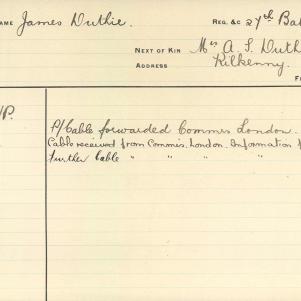 NAME James Duthie. REG. &C 27th Bat
NEXT OF KIN Mrs A. S. Duth
ADDRESS Kilkenny.
F
P.
P/Cable forwarded Commis London.
Cable received from Commis. London. Information
further Cable " " " "